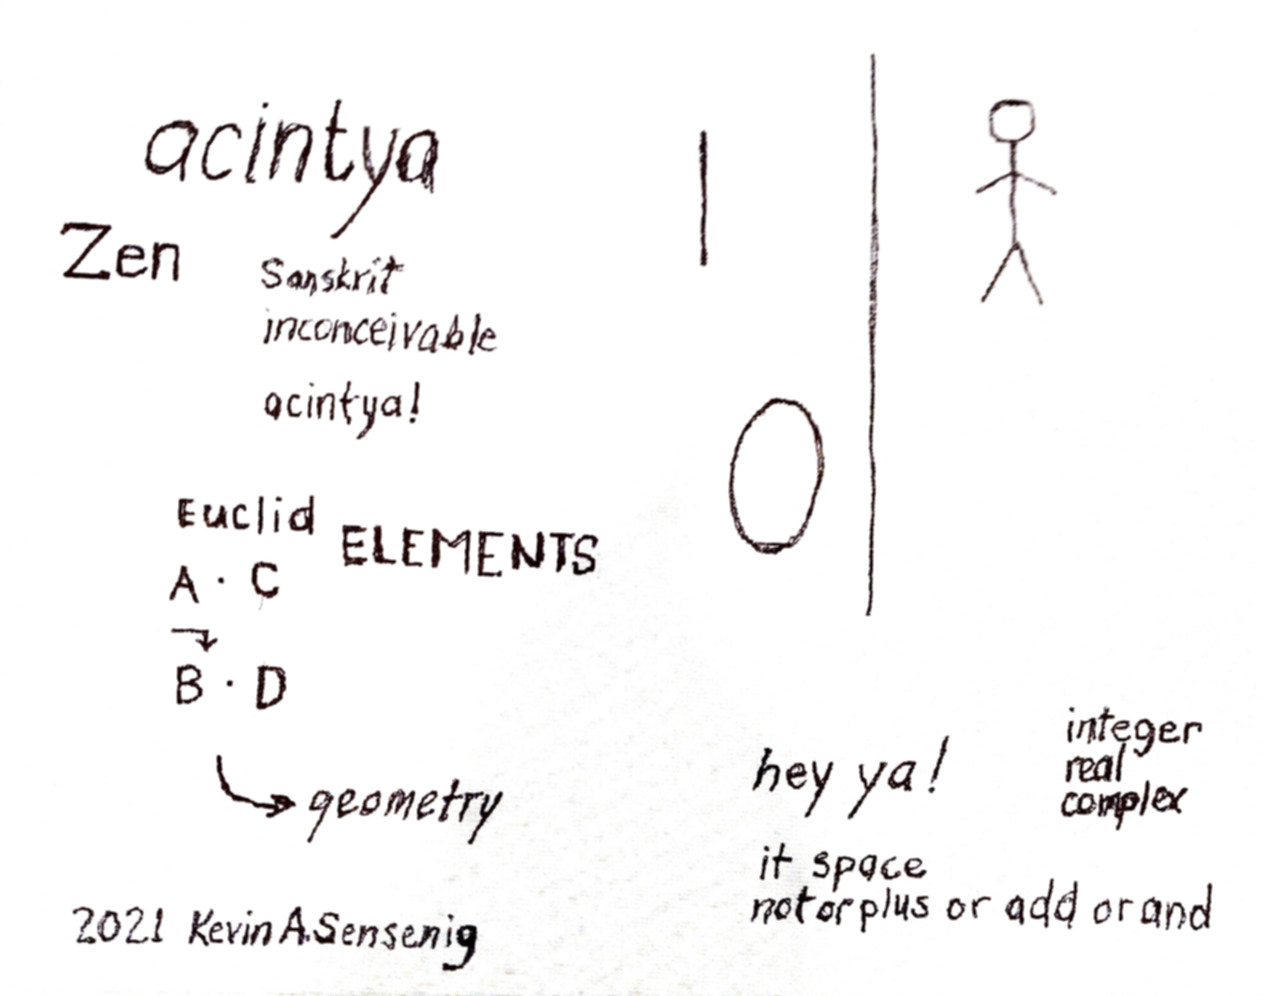 acintya
Zen
Sanskrit
inconceivable
acintya!
Euclid ELEMENTS
A · C
B · D
geometry
hey ya!
integer
real
complex
it space
not or plus or add or and
2021 Kevin A. Sensenig